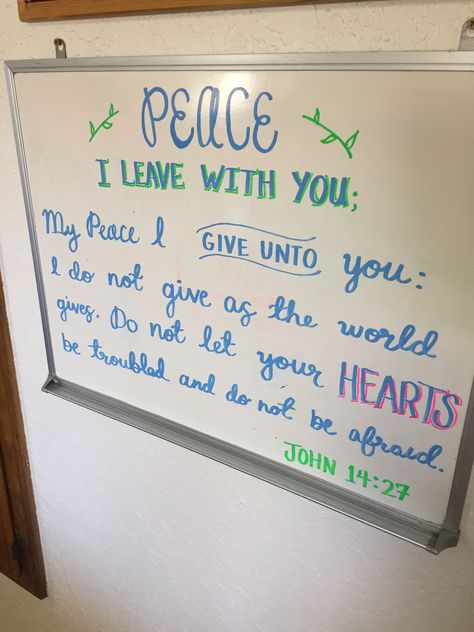 PEACE
I LEAVE WITH YOU;
My Peace I GIVE UNTO you:
I do not give as the world
gives. Do not let your HEARTS
be troubled and do not be afraid.
JOHN 14:27